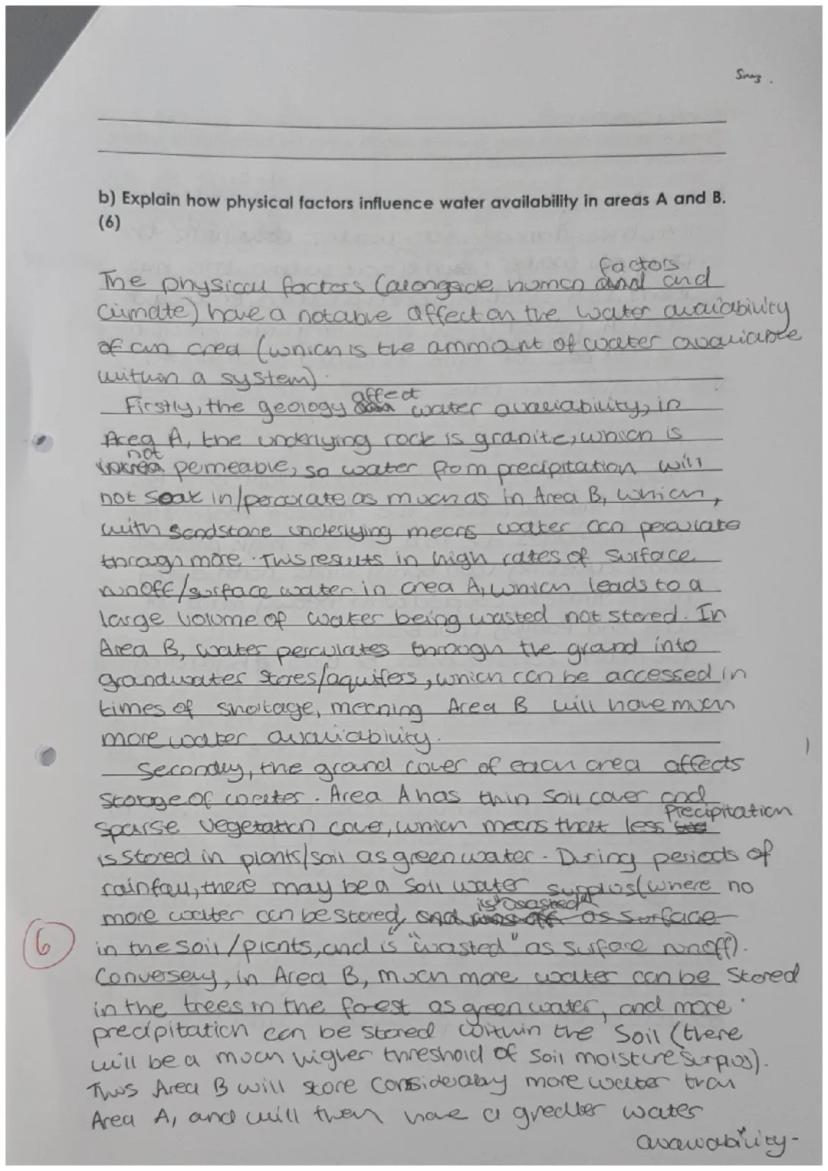 b) Explain how physical factors influence water availability in areas A and B.
(6)
The physical factors (alongside human factors and
Climate) have a notable affect on the water availability
of an area (which is the ammount of water avaliable
within a system).
Firstly, the geology affect water avaliability, in
Area A, the underlying rock is granite, which is
not permeable, so water from precipitation will
not soak in/percolate as much as in Area B, which,
with sandstone underlying means water can perculate
through more. This results in high rates of surface
runoff/surface water in area A, which leads to a
large volume of water being wasted not stored. In
Area B, water perculates through the ground into
groundwater stores/aquifers, which can be accessed in
times of shortage, meaning Area B will have much
more water avaliability.
Secondly, the ground cover of each area affects
storage of water. Area A has thin soil cover and
sparse vegetation cover, which means that less precipitation
is stored in plants/soil as green water. During periods of
rainfall, there may be a soil water surplus (where no
more water can be stored
in the soil/plants, and is "wasted" as surface runoff).
6
Conversely, in Area B, much more water can be stored
in the trees in the forest as green water, and more
precipitation can be stored within the soil (there
will be a much higher threshold of soil moisture surplus).
Thus Area B will store considerably more water than
Area A, and will then have a greater water
avaliability.